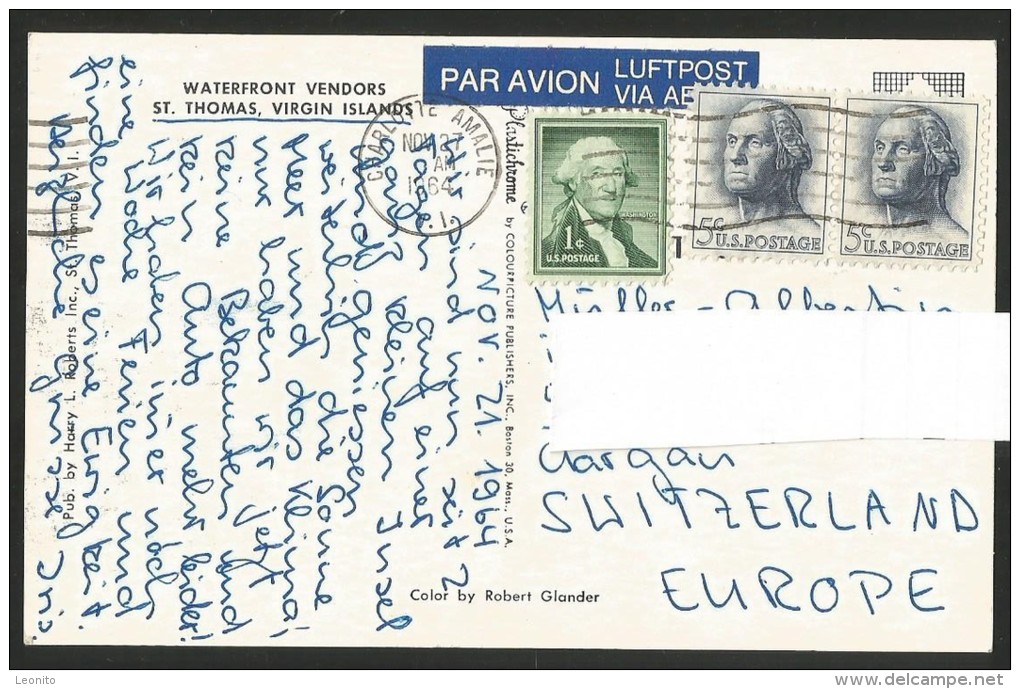 WATERFRONT VENDORS
ST. THOMAS, VIRGIN ISLANDS
PAR AVION
LUFTPOST
VIA AE
CHARLOTTE AMALIE
NOV 27
AM
1964
V. I.
WASHINGTON
1¢
U.S. POSTAGE
5¢
U.S. POSTAGE
5¢
U.S. POSTAGE
Plastichrome
by COLOURPICTURE PUBLISHERS, INC., Boston 30, Mass., U.S.A.
Pub. by Harry L. Roberts Inc., St. Thomas, V. I.
Color by Robert Glander
Nov. 21. 1964
Wir sind nun seit 2
Tagen auf einer
kleinen Insel
und geniessen
die Sonne
Meer und das Klima!
nur haben wir jetzt
keine Bekannten und
kein Auto mehr leider!
Wir haben immer noch
eine Woche Ferien und
finden es eine Ewigkeit.
Herzliche Grüsse Iris
Müller-
Aargau
SWITZERLAND
EUROPE
Leonito
delcampe.net